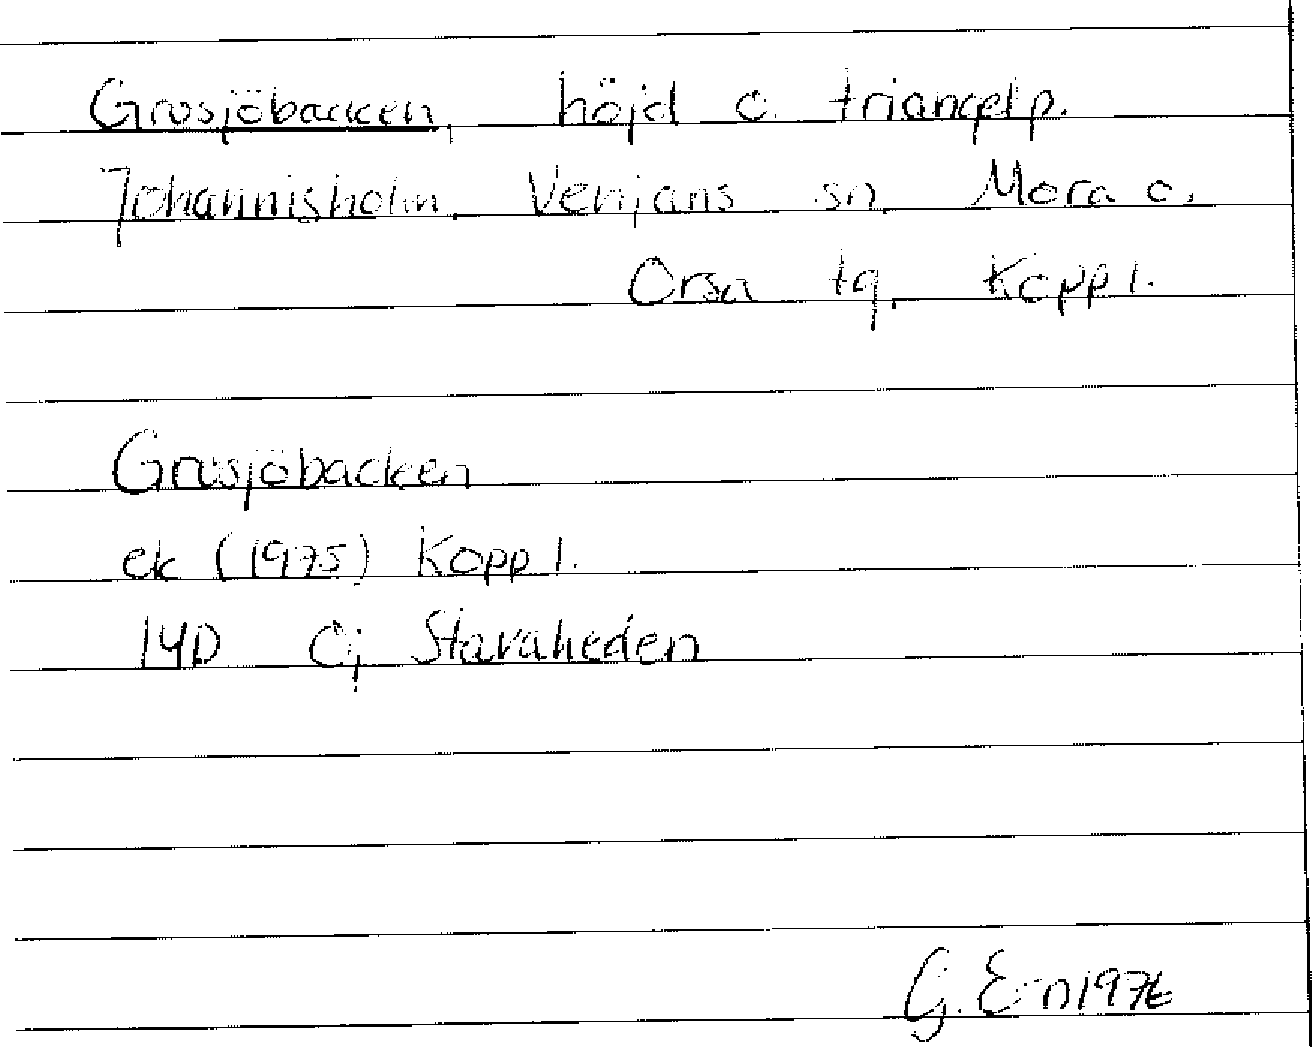 Grosjöbacken, höjd o. triangelp.
Johannisholm, Venjans sn, Mora o.
Orsa tg, Kopp l.
Grosjöbacken
ek (1975) Kopp l.
14D Öj Stavaheden
G. E-n 1976